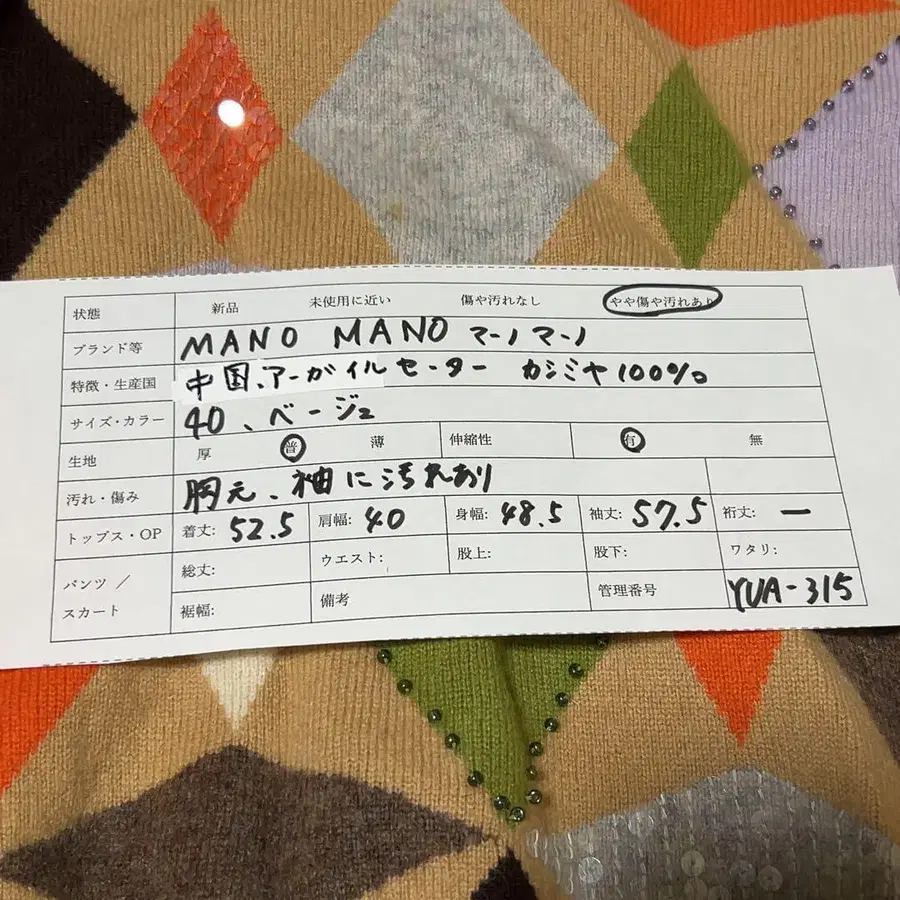 状態 新品 未使用に近い 傷や汚れなし やや傷や汚れあり
ブランド等 MANO MANO マーノマーノ
特徴・生産国 中国、アーガイルセーター カシミヤ100%
サイズ・カラー 40、ベージュ
生地 厚 普 薄 伸縮性 有 無
汚れ・傷み 胸元、袖に汚れあり
トップス・OP 着丈: 52.5 肩幅: 40 身幅: 48.5 袖丈: 57.5 裄丈: ー
パンツ／スカート 総丈: ウエスト: 股上: 股下: ワタリ:
裾幅: 備考 管理番号 YUA-315